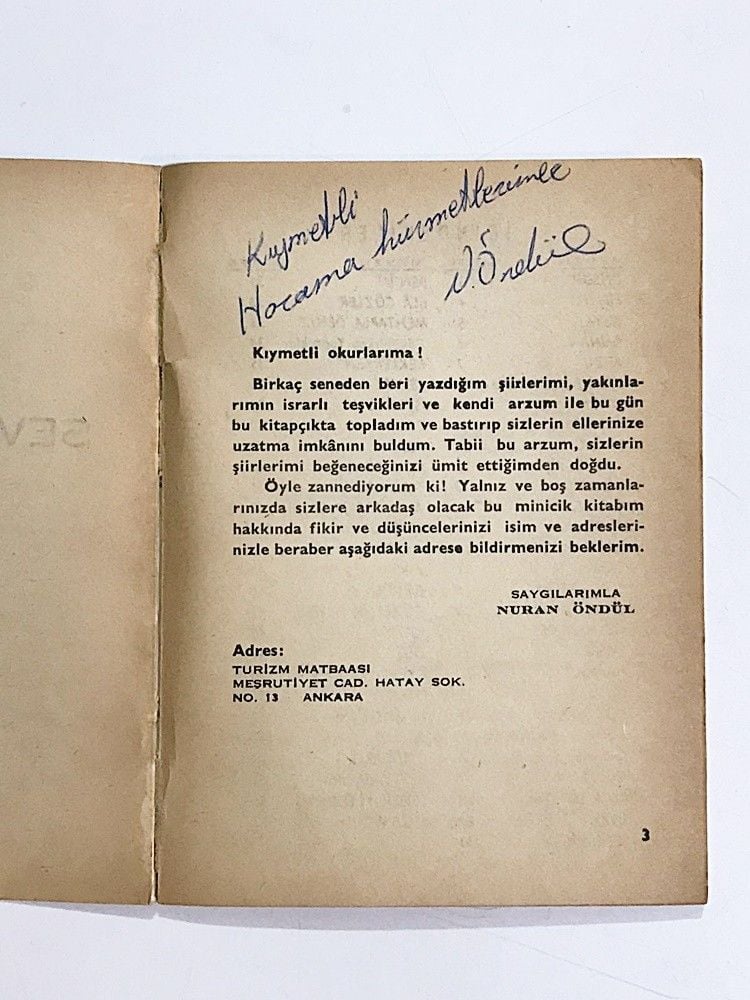 Kıymetli
Hocama hürmetlerimle
N. Öndül
Kıymetli okurlarıma !
Birkaç seneden beri yazdığım şiizlerimi, yakınla-
rımın israrlı teşvikleri ve kendi arzum ile bu gün
bu kitapçıkta topladım ve bastırıp sizlerin ellerinize
uzatma imkânını buldum. Tabii bu arzum, sizlerin
şiirlerimi beğeneceğinizi ümit ettiğimden doğdu.
Öyle zannediyorum ki! Yalnız ve boş zamanla-
rınızda sizlere arkadaş olacak bu minicik kitabım
hakkında fikir ve düşüncelerinizi isim ve adresleri-
nizle beraber aşağıdaki adrese bildirmenizi beklerim.
SAYGILARIMLA
NURAN ÖNDÜL
Adres:
TURİZM MATBAASI
MEŞRUTİYET CAD. HATAY SOK.
NO. 13 ANKARA
3